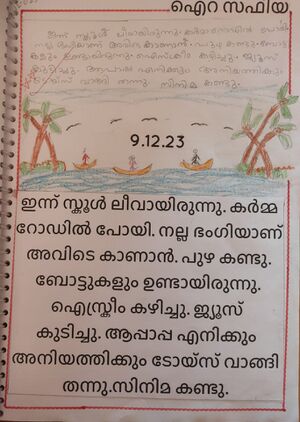 ഐറ സഫിയ
ഇന്ന് സ്കൂൾ ലീവായിരുന്നു. കർമ്മ റോഡിൽ പോയി.
നല്ല ഭംഗിയാണ് അവിടെ കാണാൻ. പുഴ കണ്ടു. ബോട്ടു
കളും ഉണ്ടായിരുന്നു. ഐസ്ക്രീം കഴിച്ചു. ജ്യൂസ്
കുടിച്ചു. ആപാപ്പ എനിക്കും അനിയത്തിക്കും
ടോയ്സ് വാങ്ങി തന്നു. സിനിമ കണ്ടു.
9.12.23
ഇന്ന് സ്കൂൾ ലീവായിരുന്നു. കർമ്മ
റോഡിൽ പോയി. നല്ല ഭംഗിയാണ്
അവിടെ കാണാൻ. പുഴ കണ്ടു.
ബോട്ടുകളും ഉണ്ടായിരുന്നു.
ഐസ്ക്രീം കഴിച്ചു. ജ്യൂസ്
കുടിച്ചു. ആപ്പാപ്പ എനിക്കും
അനിയത്തിക്കും ടോയ്സ് വാങ്ങി
തന്നു.സിനിമ കണ്ടു.